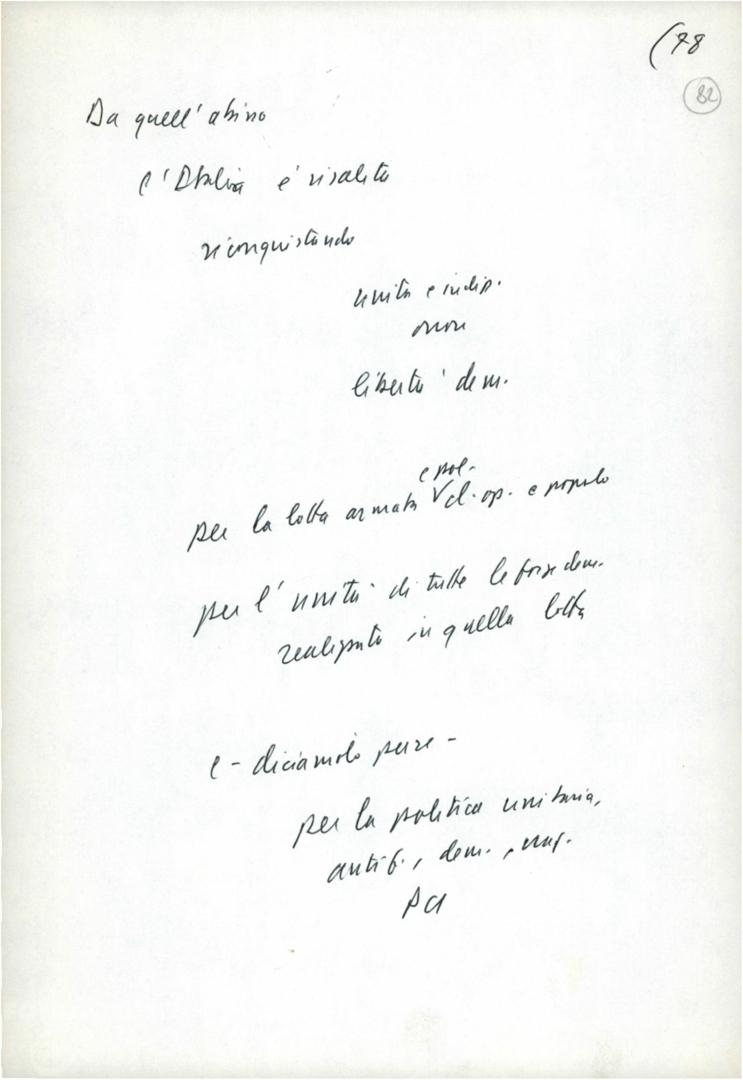 (78
82
Da quell'abisso
l'Italia è risalita
riconquistando
unità e indip.
onore
libertà dem.
e pol.
per la lotta armata cl. op. e popolo
per l'unità di tutte le forze dem.
realizzata in quella lotta
e - diciamolo pure -
per la politica unitaria,
antif., dem., naz.
PCI